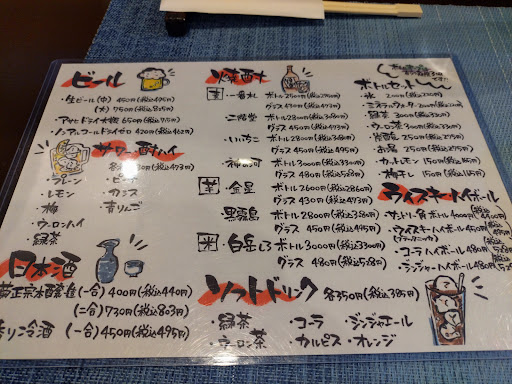 ビール
・生ビール(中) 450円(税込495円)
(大) 750円(税込825円)
・アサヒドライ大瓶 650円(税込715円)
・ノンアルコールドライゼロ 420円(税込462円)
サワー・酎ハイ
・プレーン
・レモン
・梅
・ウーロンハイ
・緑茶
・カシス
・青りんご
日本酒
菊正宗本醸造(一合) 400円(税込440円)
(二合) 730円(税込803円)
冷酒 (一合) 450円(税込495円)
焼酎
麦
・二階堂 ボトル2800円(税込3080円)
グラス 450円(税込495円)
・いいちこ ボトル2800円(税込3080円)
グラス 430円(税込473円)
・神の河 ボトル3000円(税込3300円)
グラス 480円(税込528円)
芋
・金星 ボトル2600円(税込2860円)
グラス 430円(税込473円)
・黒霧島 ボトル2800円(税込3080円)
グラス 450円(税込495円)
米
・白岳しろ ボトル3000円(税込3300円)
グラス 480円(税込528円)
ソフトドリンク 各350円(税込385円)
・緑茶
・コーラ
・ジンジャエール
・ウーロン茶
・カルピス
・オレンジ
ボトルセット
・氷 200円(税込220円)
・ミネラルウォーター 200円(税込220円)
・緑茶 300円(税込330円)
・ウーロン茶 300円(税込330円)
・お湯 250円(税込275円)
・カットレモン 150円(税込165円)
・梅干し 150円(税込165円)
ウイスキー・ハイボール
・コーラハイボール 480円
・ジンジャーハイボール 480円